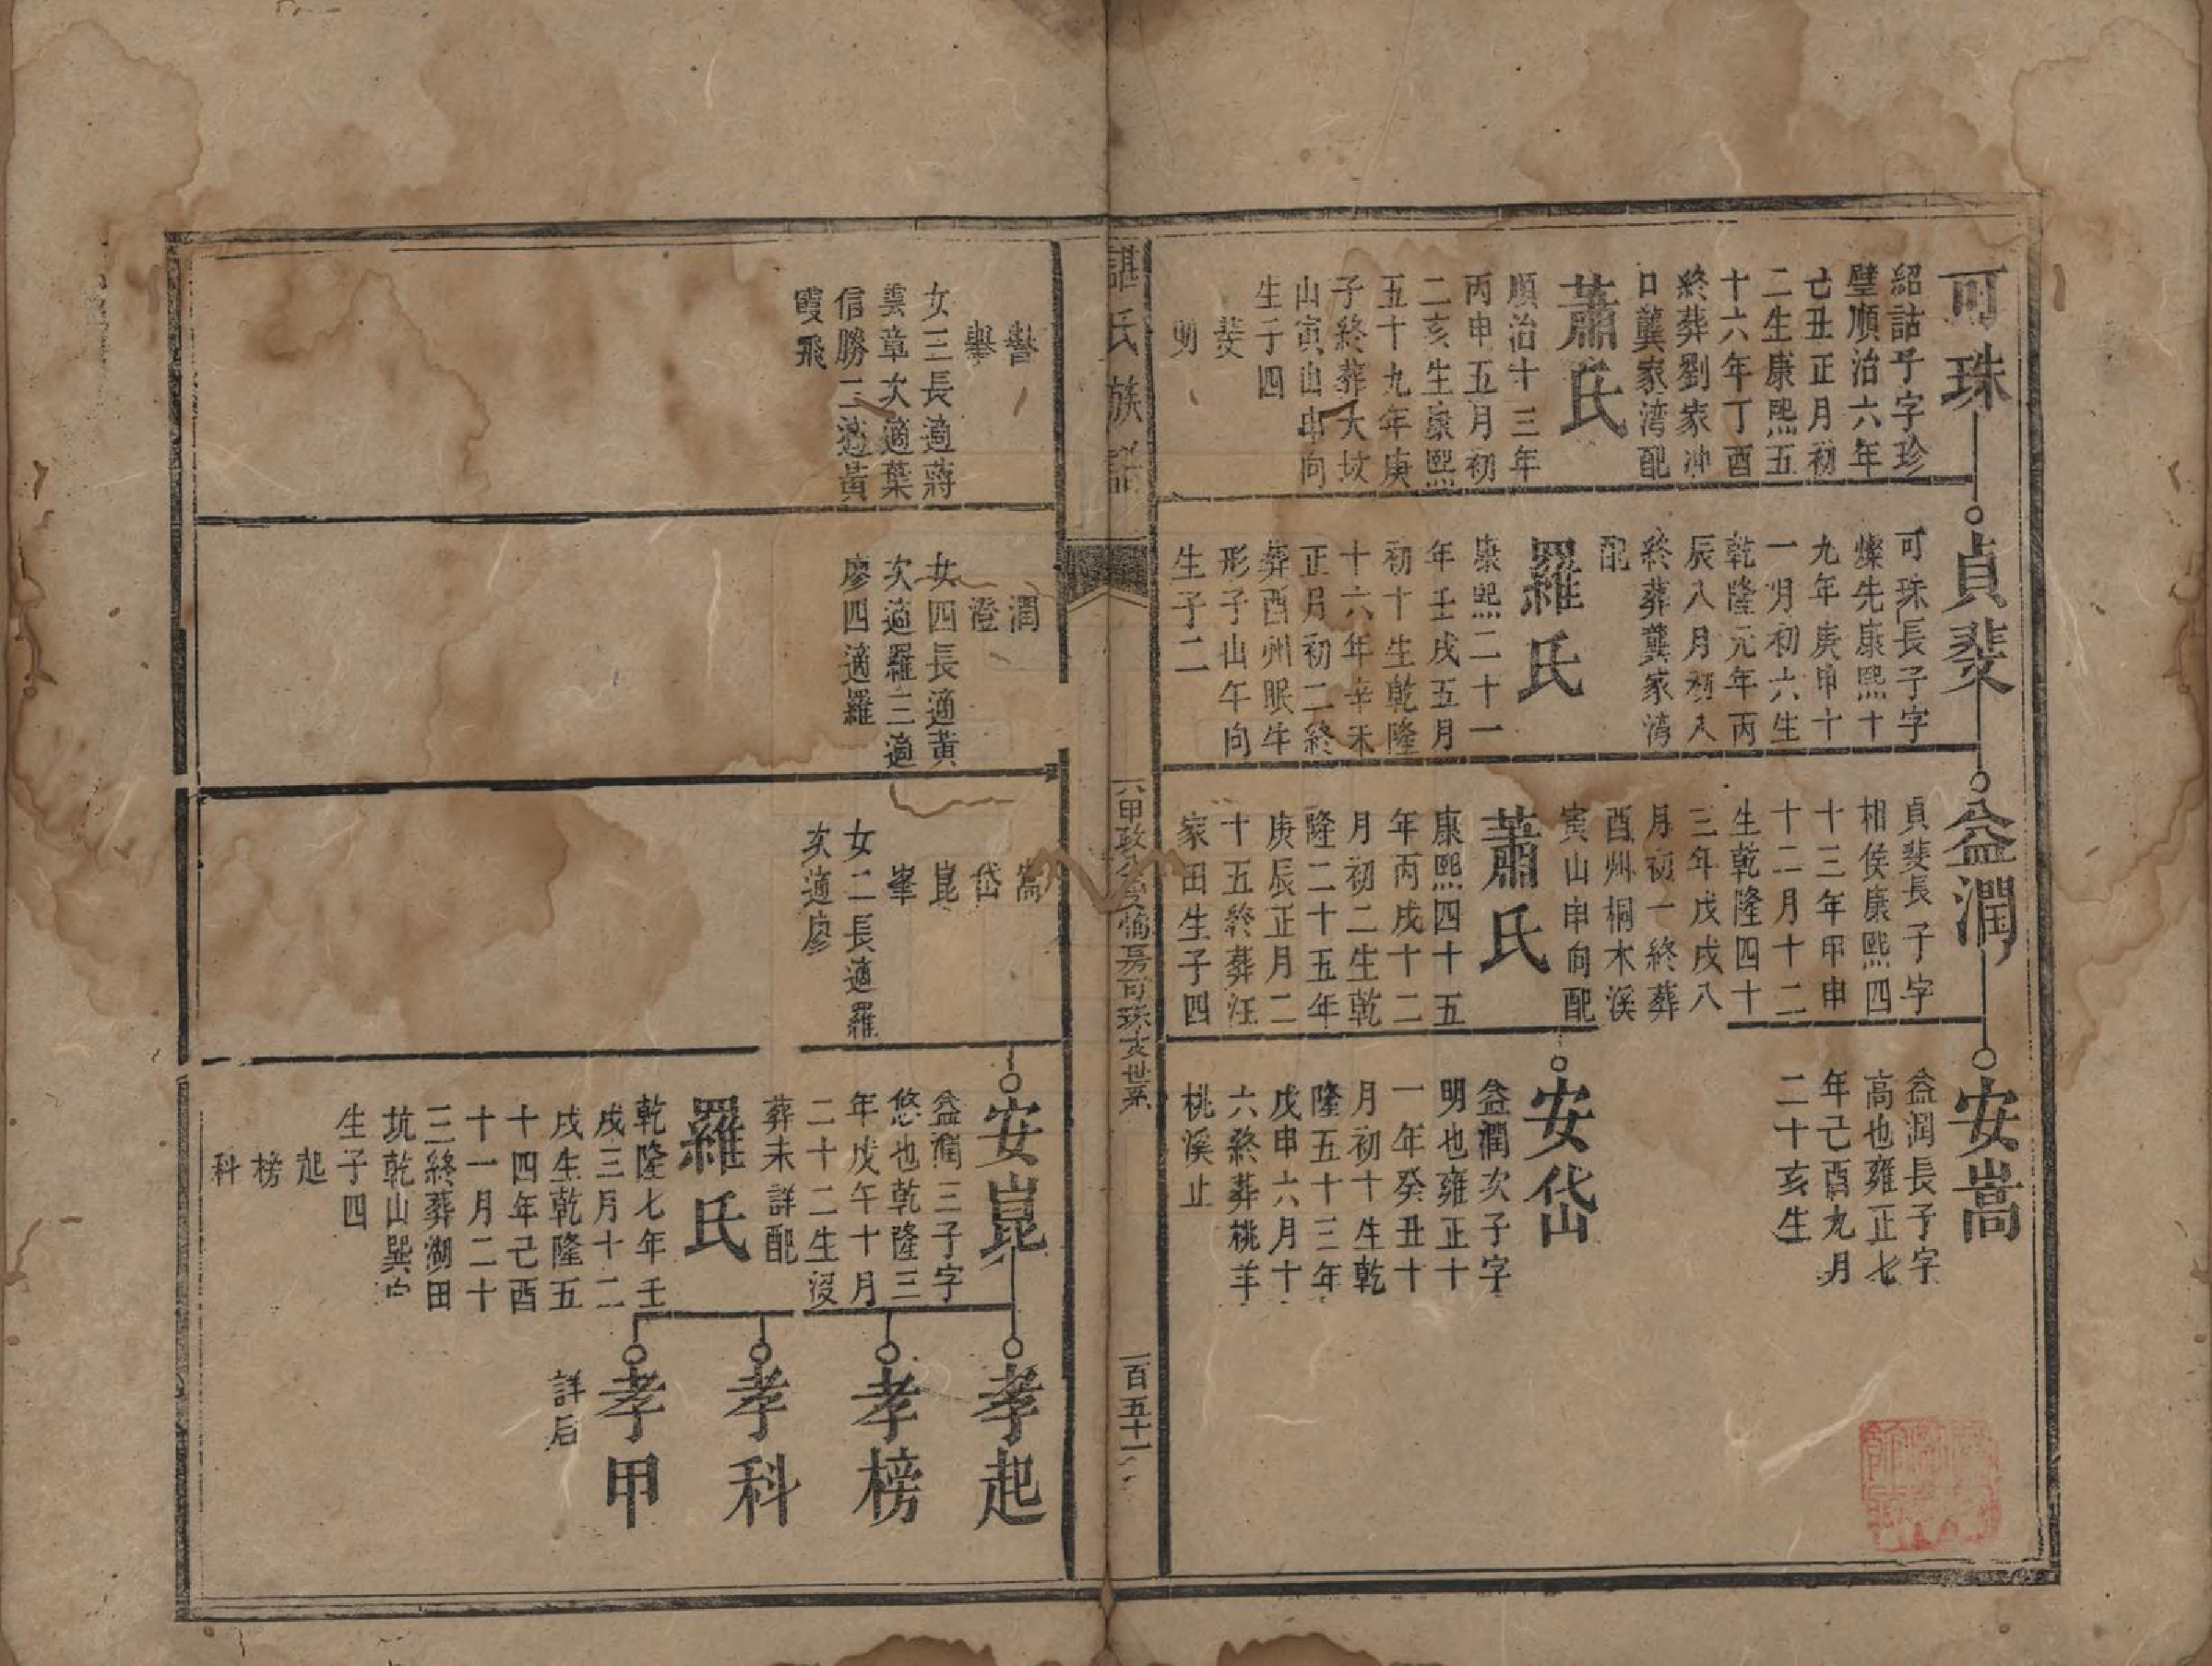 可珠
紹詁子字珍
璧順治六年
己丑正月初
二生康熙五
十六年丁酉
終葬劉家冲
口龔家湾配
蕭氏
順治十三年
丙申五月初
二亥生康熙
五十九年庚
子終葬大坟
山寅山申向
生子四
斐
貞斐
可珠長子字
燦先康熙十
九年庚申十
一月初六生
乾隆元年丙
辰八月初八
終葬龔家湾
配
羅氏
康熙二十一
年壬戌五月
初十生乾隆
十六年辛未
正月初二終
葬酉州眠牛
形子山午向
生子二
益潤
貞斐長子字
相侯康熙四
十三年甲申
十二月十二
生乾隆四十
三年戊戌八
月初一終葬
酉州桐木溪
寅山申向配
蕭氏
康熙四十五
年丙戌十二
月初二生乾
隆二十五年
庚辰正月二
十五終葬汪
家田生子四
安嵩
益潤長子字
高也雍正七
年己酉九月
二十亥生
安岱
益潤次子字
明也雍正十
一年癸丑十
月初十生乾
隆五十三年
戊申六月十
六終葬桃羊
桃溪止
諶氏族譜
一百五十一
女三長適蔣
雲章次適葉
信勝三適黃
霞飛
潤
澄
女四長適黃
次適羅三適
廖四適羅
嵩
岱
崑
峯
女二長適羅
次適廖
安崑
益潤三子字
悠也乾隆三
年戊午十月
二十二生沒
葬未詳配
羅氏
乾隆七年壬
戌三月十二
戌生乾隆五
十四年己酉
十一月二十
三終葬湖田
坑乾山巽向
生子四
起
榜
科
孝起
孝榜
孝科
孝甲
詳后